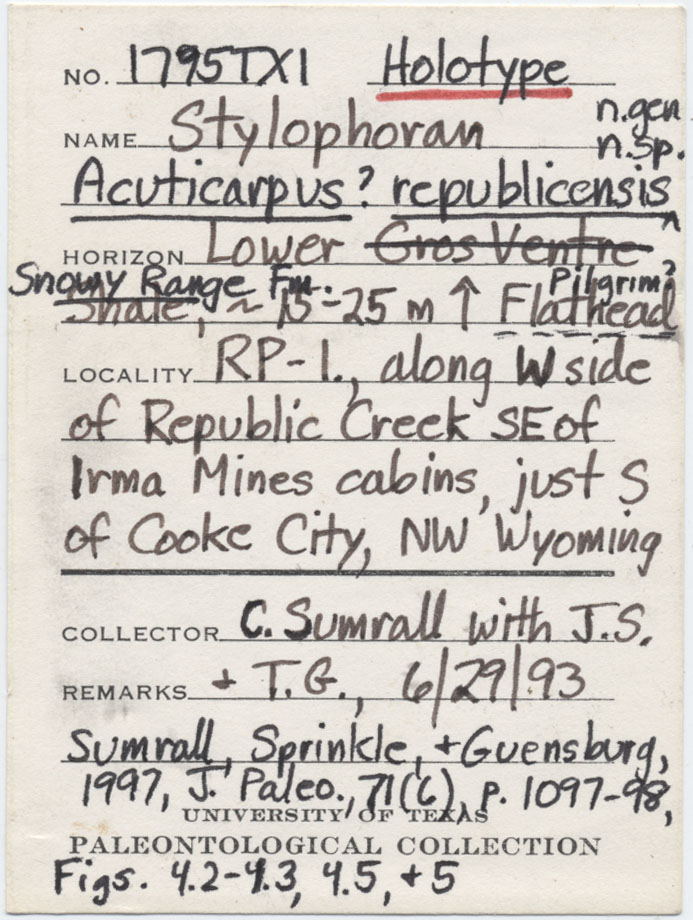 NO. 1795TX1 Holotype
NAME Stylophoran n.gen. n.sp.
Acuticarpus? republicensis
HORIZON Lower Gros Ventre
Snowy Range Fm. Pilgrim?
Shale, ~ 15-25 m ↑ Flathead
LOCALITY RP-1., along W side
of Republic Creek SE of
Irma Mines cabins, just S
of Cooke City, NW Wyoming
COLLECTOR C. Sumrall with J.S.
REMARKS + T.G., 6/29/93
Sumrall, Sprinkle, + Guensburg,
1997, J. Paleo., 71(6), p. 1097-98,
UNIVERSITY OF TEXAS
PALEONTOLOGICAL COLLECTION
Figs. 4.2-4.3, 4.5, + 5